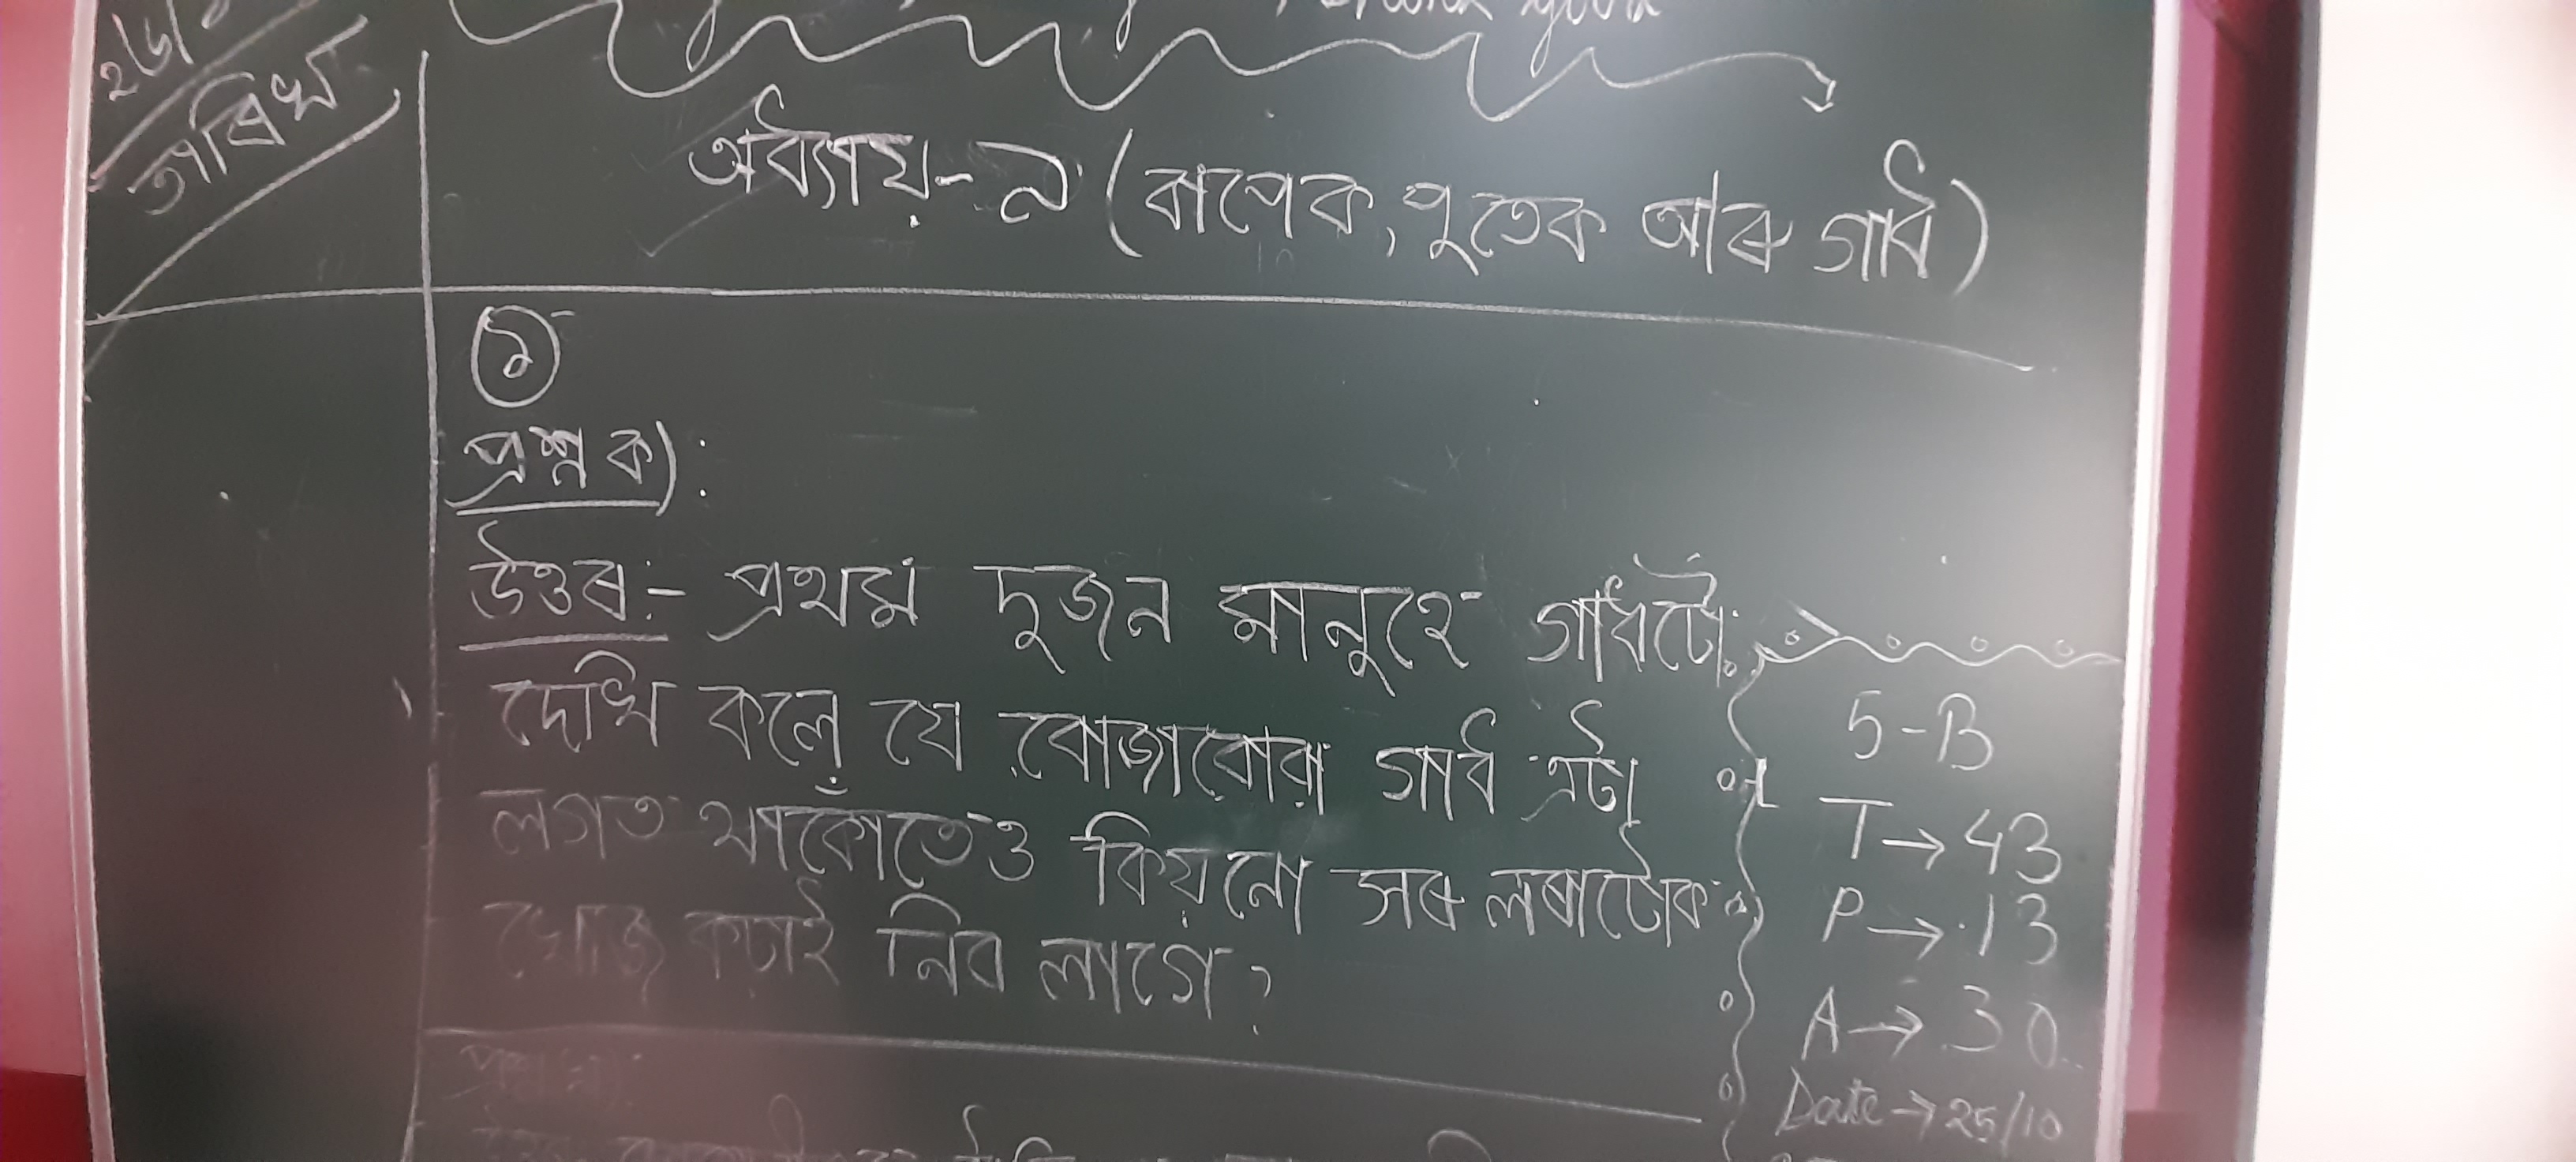 তাৰিখ
অধ্যায়-৯ (বাপেক, পুতেক আৰু গাধ)
১
প্ৰশ্ন ক) :
উত্তৰ:- প্ৰথম দুজন মানুহে গাধটো
দেখি কলে যে বোজাবোৱা গাধ এটা
লগত থাকোঁতেও কিয়নো সৰু লৰাটোক
খোজ কঢ়াই নিব লাগে?
প্ৰশ্ন খ) :
5-B
T → 43
P → 13
A → 30
Date → 25/10